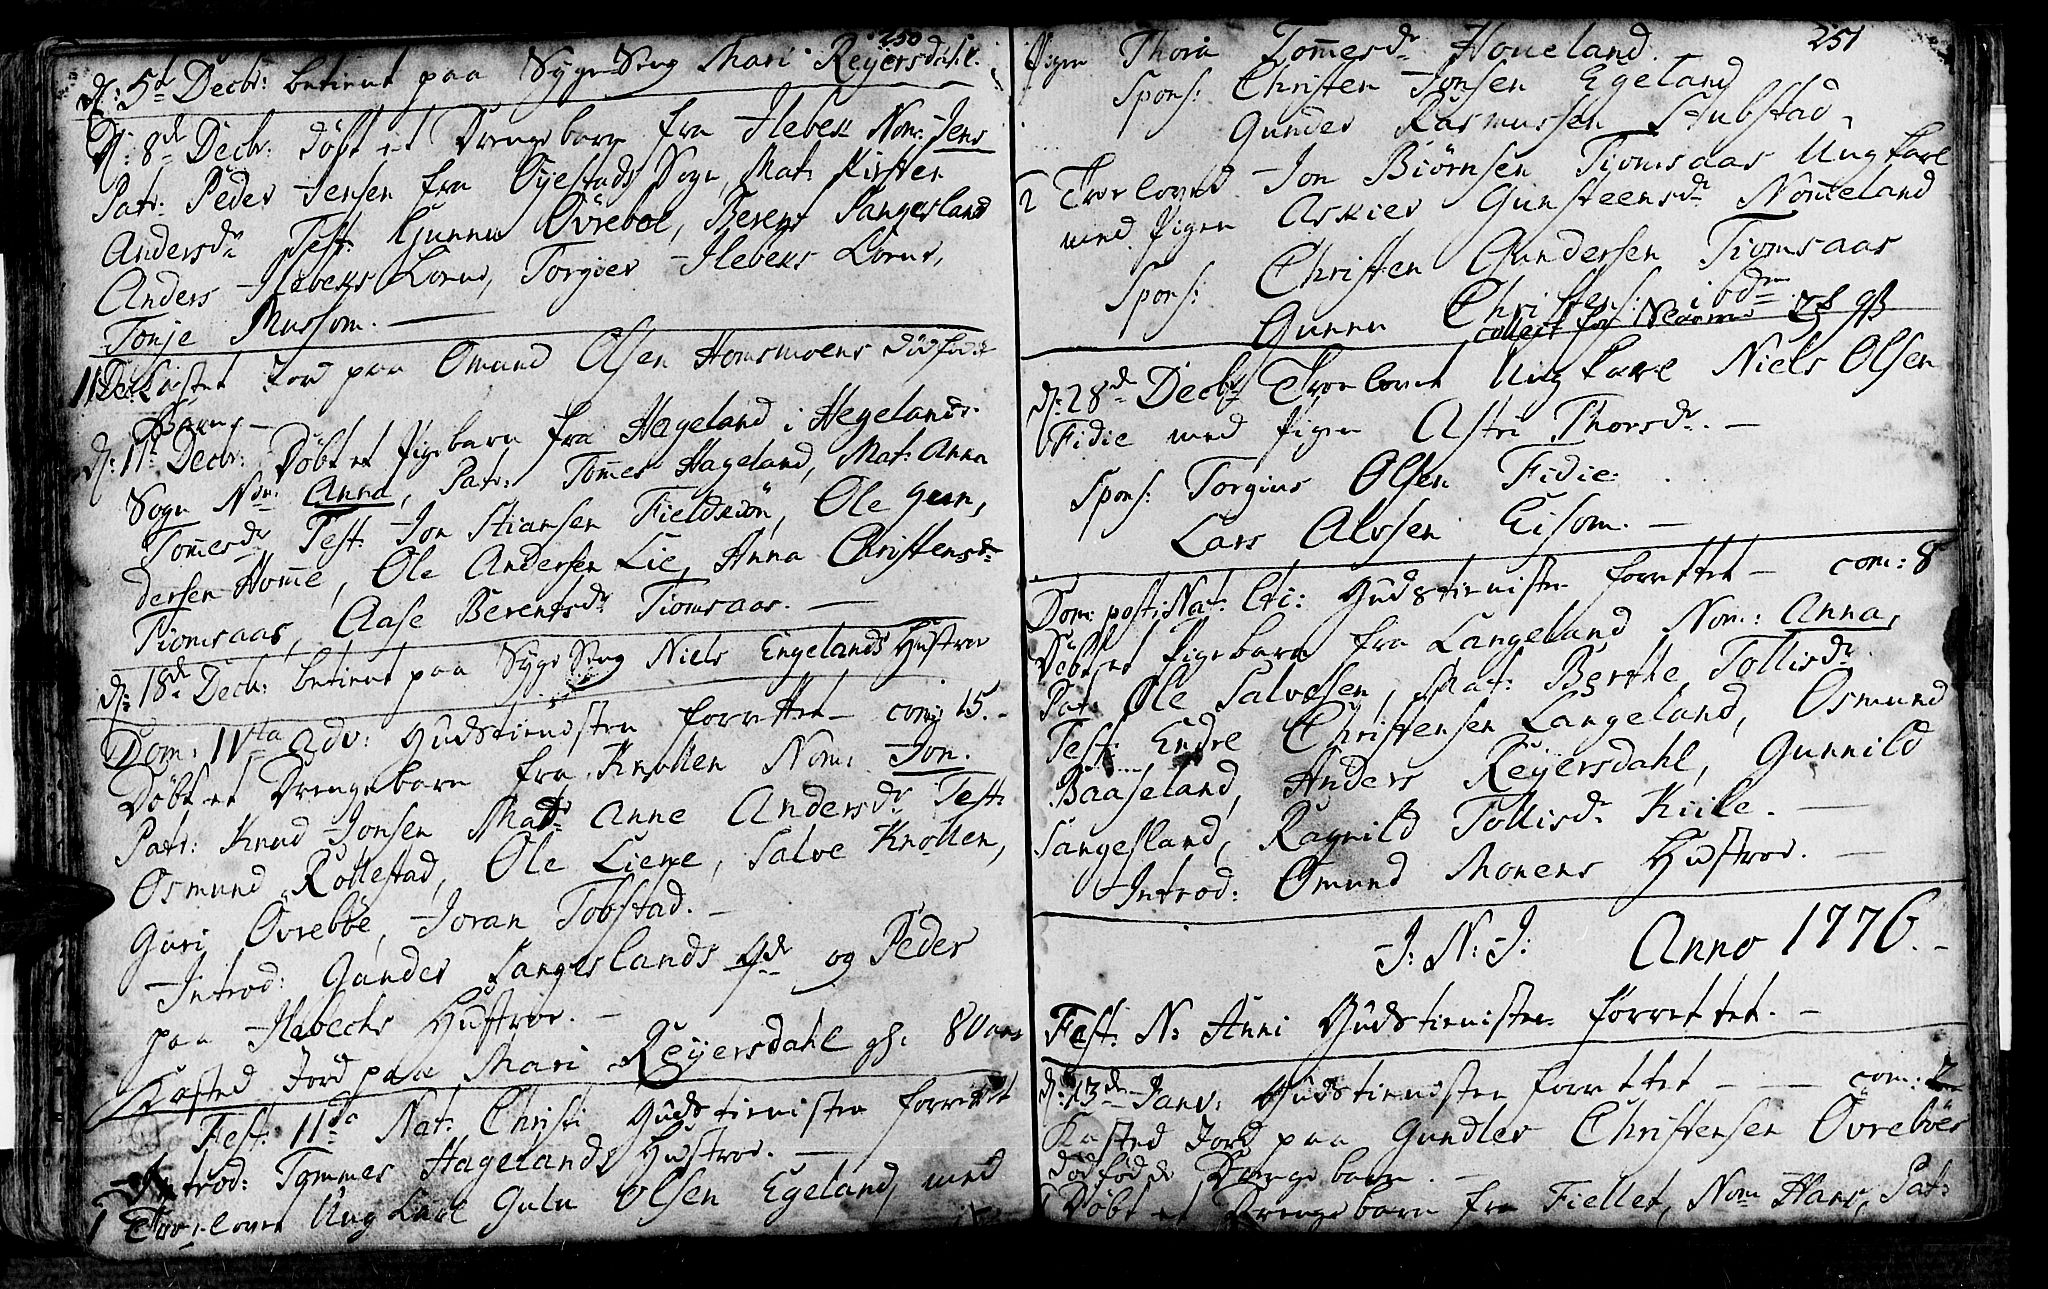 250
d: 5te Decbr: betient paa Syge Seng Mari Reyersdahl.
D: 8de Decbr: døbt et Drengebarn fra Ilebek Nom: Jens
Patr: Peder Jensen fra Øyestads Sogn, Mat: Kirsten
Andersdr Test: Gunne Øvreboe, Berent Sangesland
Anders Ilebeks Kone, Torgier Ilebeks Kone,
Tonje Mussom. —
11 Dec Kastet Jord paa Omund Olsen Homsmoens dødfødt
Barn. —
d: 11te Decbr: Døbt et Pigebarn fra Hageland i Hegelands
Sogn Nom: Anna, Patr: Tommes Hageland, Mat: Anna
Tommesdr Test: Jon Stiansen Fieldsdøn, Ole Gun,
dersen Homme, Ole Andersen Lie, Anna Christensdr
Tiomsaas, Aase Berentsdr Tiomsaas. —
d: 18de Decbr: betient paa Syge Seng Niels Engelands Hustroe
Dom: IVta Adv: Gudstienisten forrettet — com: 15. -
Døbt et Drengebarn fra Knollen Nom: Jon.
Patr: Knud Jonsen Mat: Anne Andersdr Test:
Osmund Røllestad, Ole Liene, Salve Knollen,
Guri Øvrebøe, Joran Tobstad. —
Introd: Gunder Sangeslands og Peder
paa Ilebechs Hustroe. —
Kasted Jord paa Mari Reyersdahl gl: 80 aar
Fest: IIda Nat: Christi Gudstienisten forrettet
Introd: Tommes Hagelands Hustroe. —
1 Trolovet Ung Karl Gulu Olsen Egeland med
251
Pigen Thora Tommesdr Houeland. —
Spons: Christen Jonsen Egeland
Gunder Rasmussen Stubstad,
2 Trolovet Jon Biørnsen Tiomsaas Ung Karl
med Pigen Askier Gunsteensdr Nommeland
Spons: Christen Gundersen Tiomsaas
Gunnu Christens: ibdm
collect for
d: 28de Decbr Trolovet Ung Karl Niels Olsen
Fidie med Pigen Astri Thorsdr. —
Spons: Torgius Olsen Fidie.
Lars Alvsen Eisom. —
Dom: post: Nat: Cti: Gudstienisten forrettet — com: 8
Døbt et Pigebarn fra Langeland Nom: Anna,
Pat: Ole Salvesen, Mat: Berthe Tollisdr
Test: Endre Christensen Langeland, Osmund
Baaseland, Anders Reyersdahl, Gunnild
Sangesland, Ragnild Tollisdr Kiile. —
Introd: Omund Monens Hustroe. —
J: N: J: Anno 1776. -
Fest: N: Anni Gudstienisten forrettet. —
d: 13de Janv: Gudstienisten forrettet — — com: 2
Kasted Jord paa Gundler Christensen Øvrebøes
dødfødde Drengebarn. —
Døbt et Drengebarn fra Fiellet, Nom Hans, Pat: